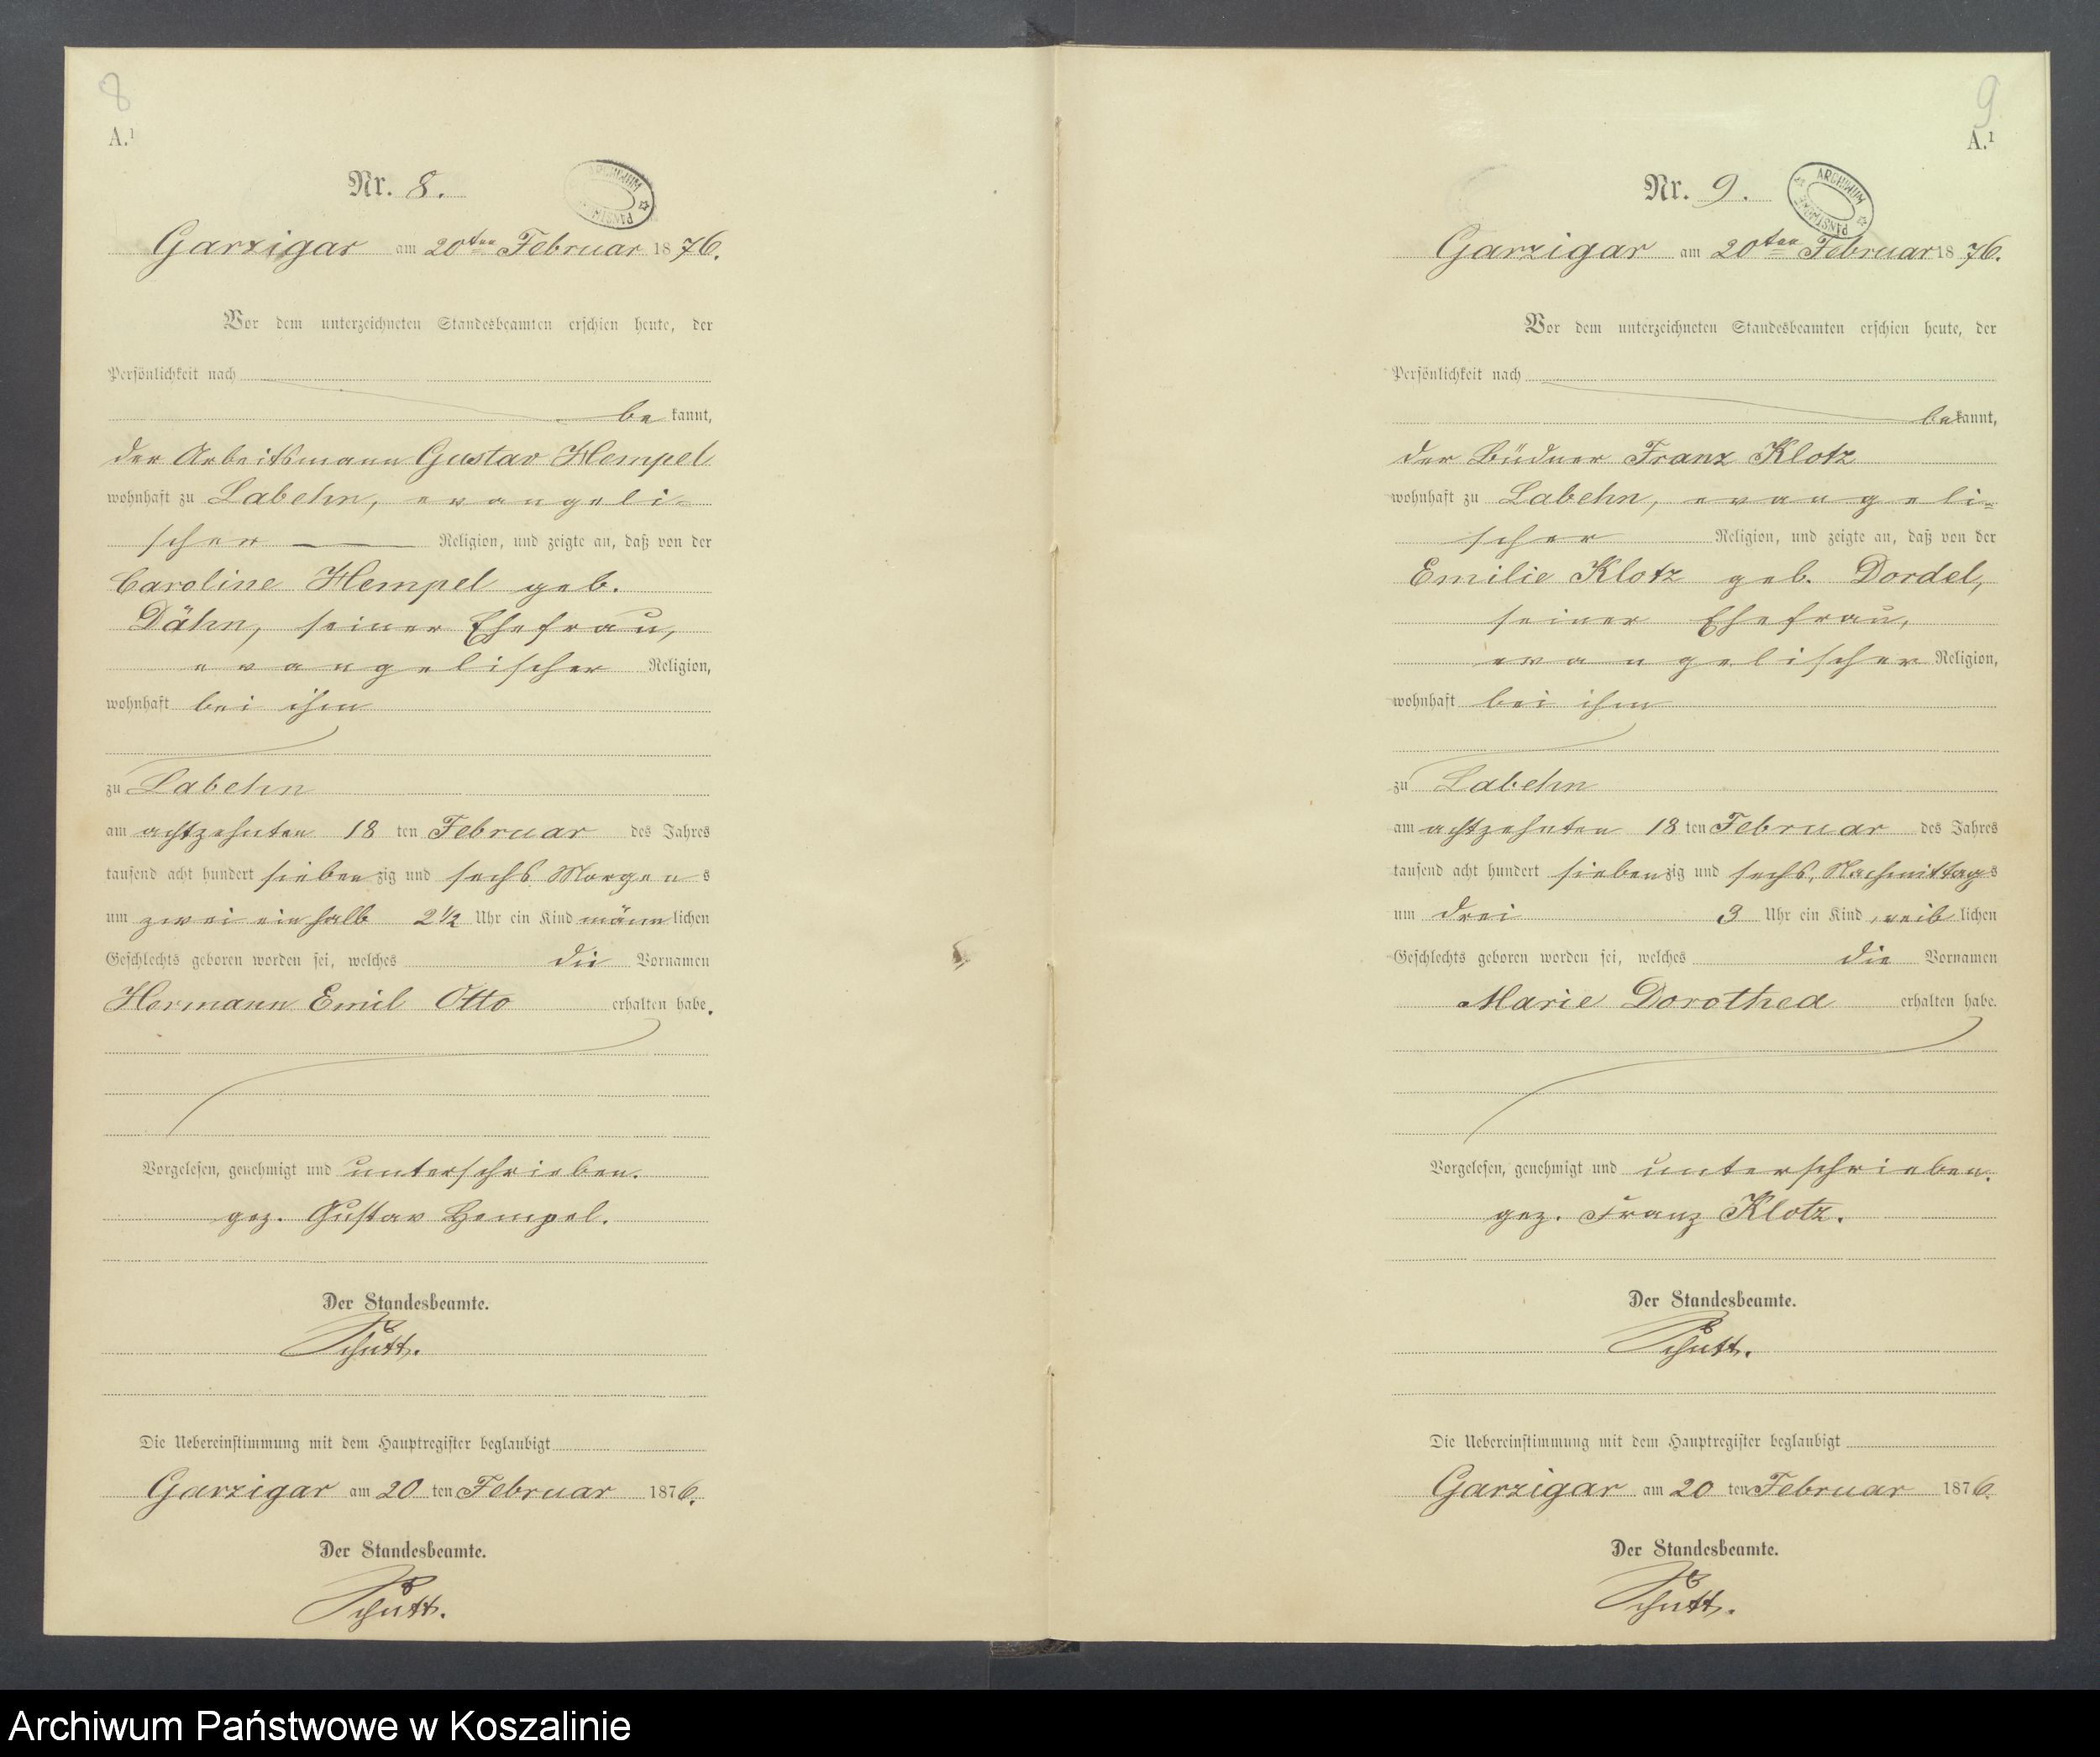 8
A.¹
Nr. 8.
ARCHIWUM PAŃSTWOWE
Garzigar am 20ten Februar 1876.
Vor dem unterzeichneten Standesbeamten erschien heute, der
Persönlichkeit nach
be kannt,
der Arbeitsmann Gustav Hempel
wohnhaft zu Labehn, evangeli-
scher Religion, und zeigte an, daß von der
Caroline Hempel geb.
Dähn, seiner Ehefrau,
evangelischer Religion,
wohnhaft bei ihm
zu Labehn
am achtzehnten 18 ten Februar des Jahres
tausend acht hundert siebenzig und sechs Morgens
um zwei ein halb 2½ Uhr ein Kind männlichen
Geschlechts geboren worden sei, welches die Vornamen
Hermann Emil Otto erhalten habe.
Vorgelesen, genehmigt und unterschrieben.
gez. Gustav Hempel.
Der Standesbeamte.
Schütt.
Die Uebereinstimmung mit dem Hauptregister beglaubigt
Garzigar am 20 ten Februar 1876.
Der Standesbeamte.
Schütt.
9
A.¹
Nr. 9.
ARCHIWUM PAŃSTWOWE
Garzigar am 20ten Februar 1876.
Vor dem unterzeichneten Standesbeamten erschien heute, der
Persönlichkeit nach
bekannt,
der Büdner Franz Klotz
wohnhaft zu Labehn, evangeli-
scher Religion, und zeigte an, daß von der
Emilie Klotz geb. Dordel,
seiner Ehefrau,
evangelischer Religion,
wohnhaft bei ihm
zu Labehn
am achtzehnten 18 ten Februar des Jahres
tausend acht hundert siebenzig und sechs, Nachmittags
um drei 3 Uhr ein Kind weiblichen
Geschlechts geboren worden sei, welches die Vornamen
Marie Dorothea erhalten habe.
Vorgelesen, genehmigt und unterschrieben.
gez. Franz Klotz.
Der Standesbeamte.
Schütt.
Die Uebereinstimmung mit dem Hauptregister beglaubigt
Garzigar am 20 ten Februar 1876.
Der Standesbeamte.
Schütt.
Archiwum Państwowe w Koszalinie